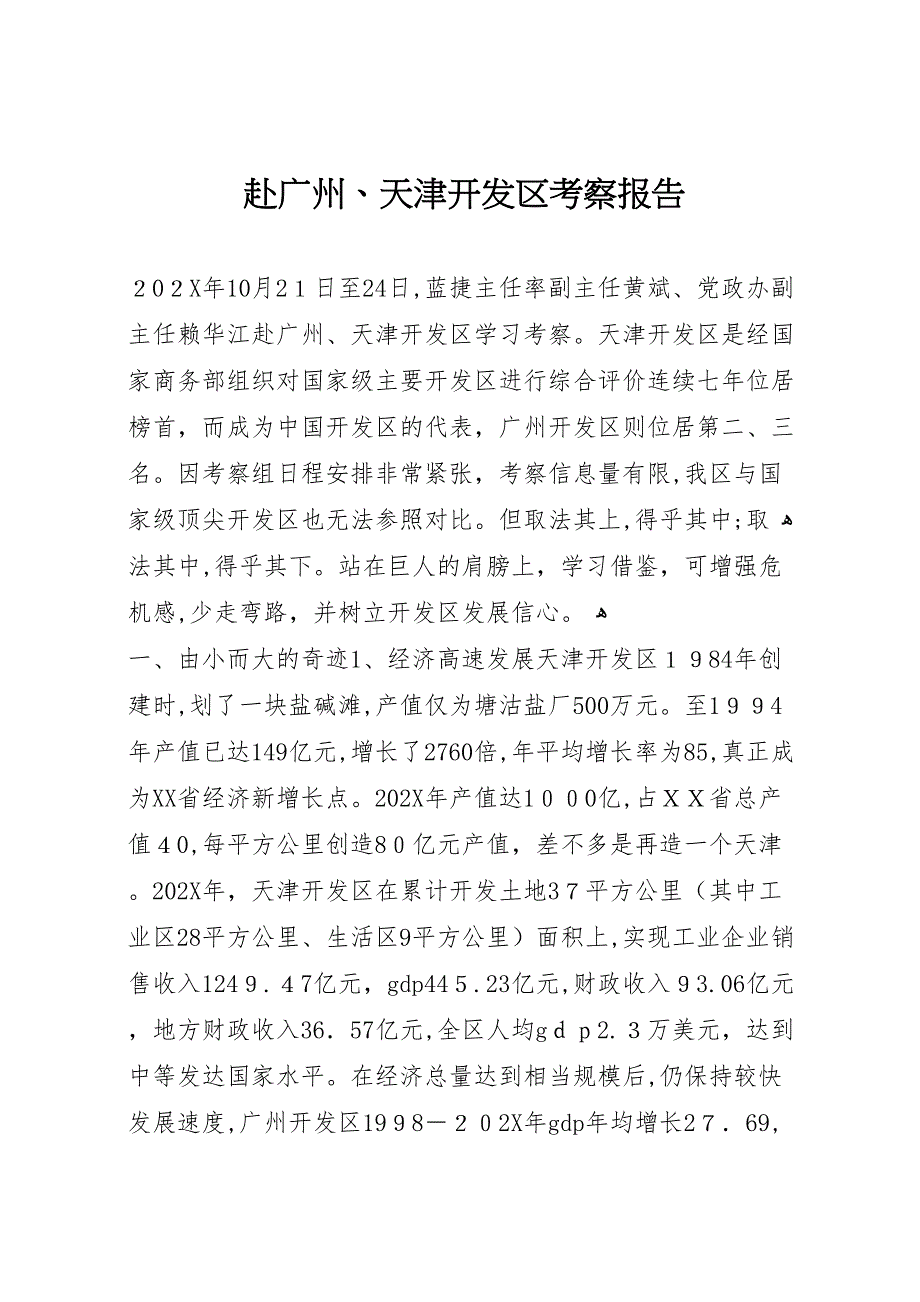 赴广州、天津开发区考察报告
202X年10月21日至24日,蓝捷主任率副主任黄斌、党政办副
主任赖华江赴广州、天津开发区学习考察。天津开发区是经国
家商务部组织对国家级主要开发区进行综合评价连续七年位居
榜首，而成为中国开发区的代表，广州开发区则位居第二、三
名。因考察组日程安排非常紧张，考察信息量有限,我区与国
家级顶尖开发区也无法参照对比。但取法其上,得乎其中;取 ﻫ
法其中,得乎其下。站在巨人的肩膀上，学习借鉴，可增强危
机感,少走弯路，并树立开发区发展信心。 ﻫ
一、由小而大的奇迹1、经济高速发展天津开发区１984年创
建时,划了一块盐碱滩,产值仅为塘沽盐厂500万元。至1９９4
年产值已达149亿元,增长了2760倍,年平均增长率为85,真正成
为XX省经济新增长点。202X年产值达1０00亿,占ＸＸ省总产
值４0,每平方公里创造8０亿元产值，差不多是再造一个天津
。202X年，天津开发区在累计开发土地3７平方公里（其中工
业区28平方公里、生活区9平方公里）面积上,实现工业企业销
售收入1249.４7亿元，gdp44５.23亿元,财政收入９3.06亿元
，地方财政收入36．57亿元,全区人均gｄp2.３万美元，达到
中等发达国家水平。在经济总量达到相当规模后,仍保持较快
发展速度,广州开发区19９8－２０2X年gdp年均增长2７．69,